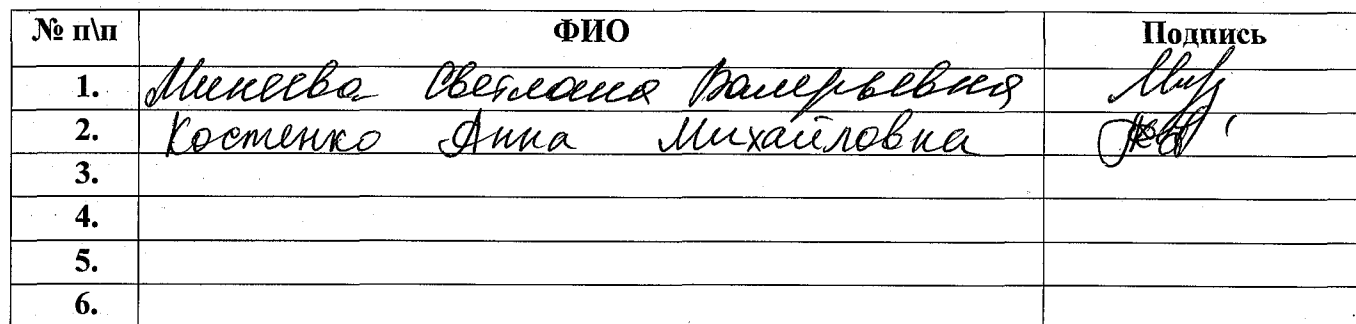 № п\п ФИО Подпись
1. Минеева Светлана Валерьевна
2. Костенко Анна Михайловна
3.
4.
5.
6.